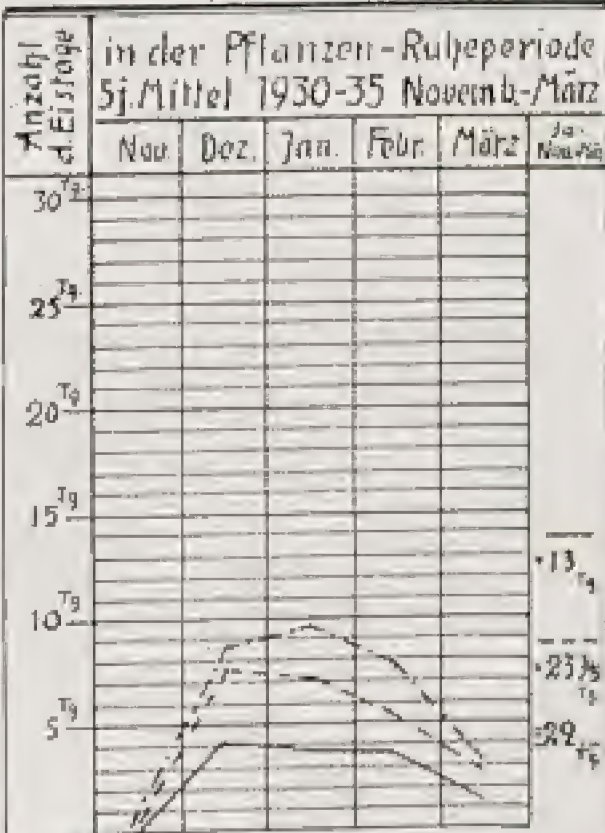 Anzahl
d. Eistage
in der Pflanzen-Ruheperiode
5j. Mittel 1930-35 Novemb.-März
Nov. Dez. Jan. Febr. März
30 Tg.
25 Tg.
20 Tg.
15 Tg
10 Tg
5 Tg
= 13 Tg